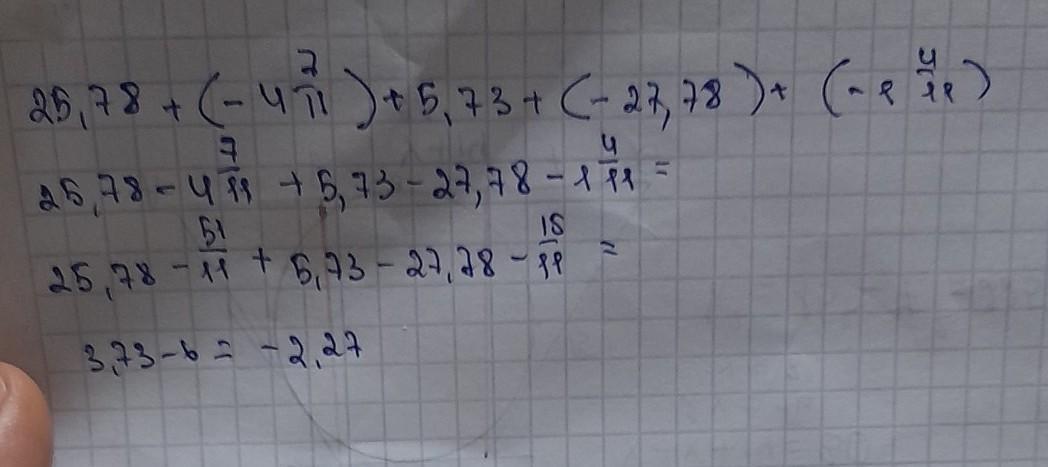 25,78 + (- 4 7/11) + 5,73 + (- 27,78) + (- 1 4/11)
25,78 - 4 7/11 + 5,73 - 27,78 - 1 4/11 =
25,78 - 51/11 + 5,73 - 27,78 - 15/11 =
3,73 - 6 = - 2,27